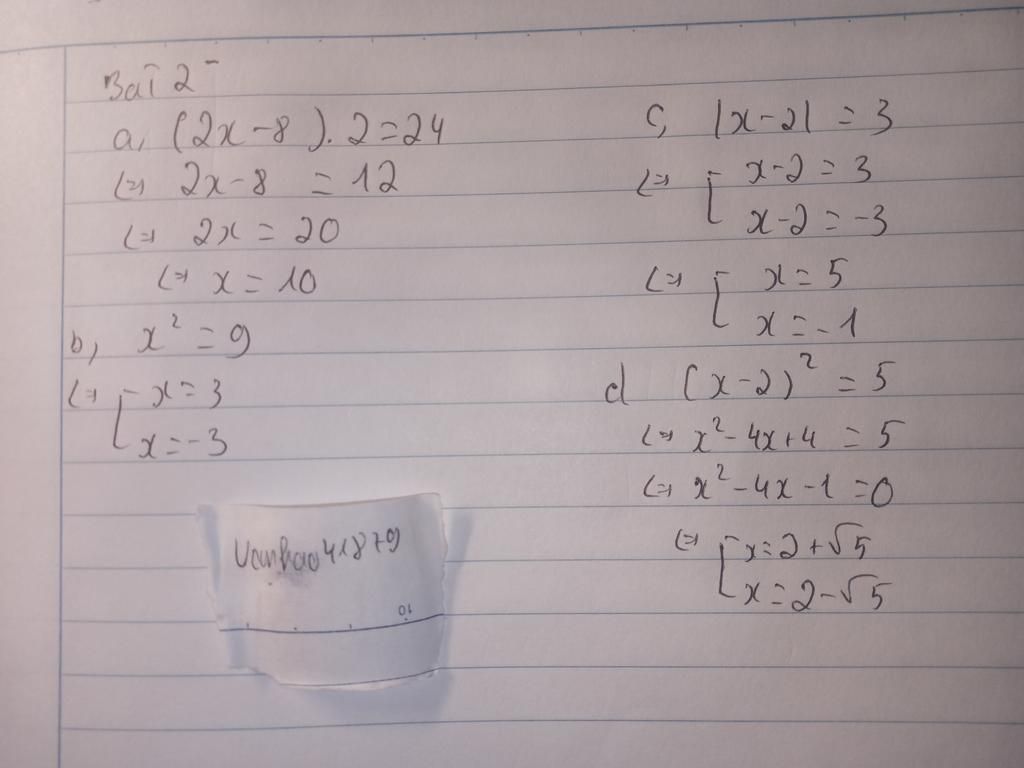 Bài 2
a, (2x-8).2=24
<=> 2x-8 = 12
<=> 2x = 20
<=> x = 10
b, x² = 9
<=> [ x=3
x=-3
c, |x-2| = 3
<=> [ x-2 = 3
x-2 = -3
<=> [ x = 5
x = -1
d (x-2)² = 5
<=> x²-4x+4 = 5
<=> x²-4x-1 =0
<=> [ x=2+√5
x=2-√5
10